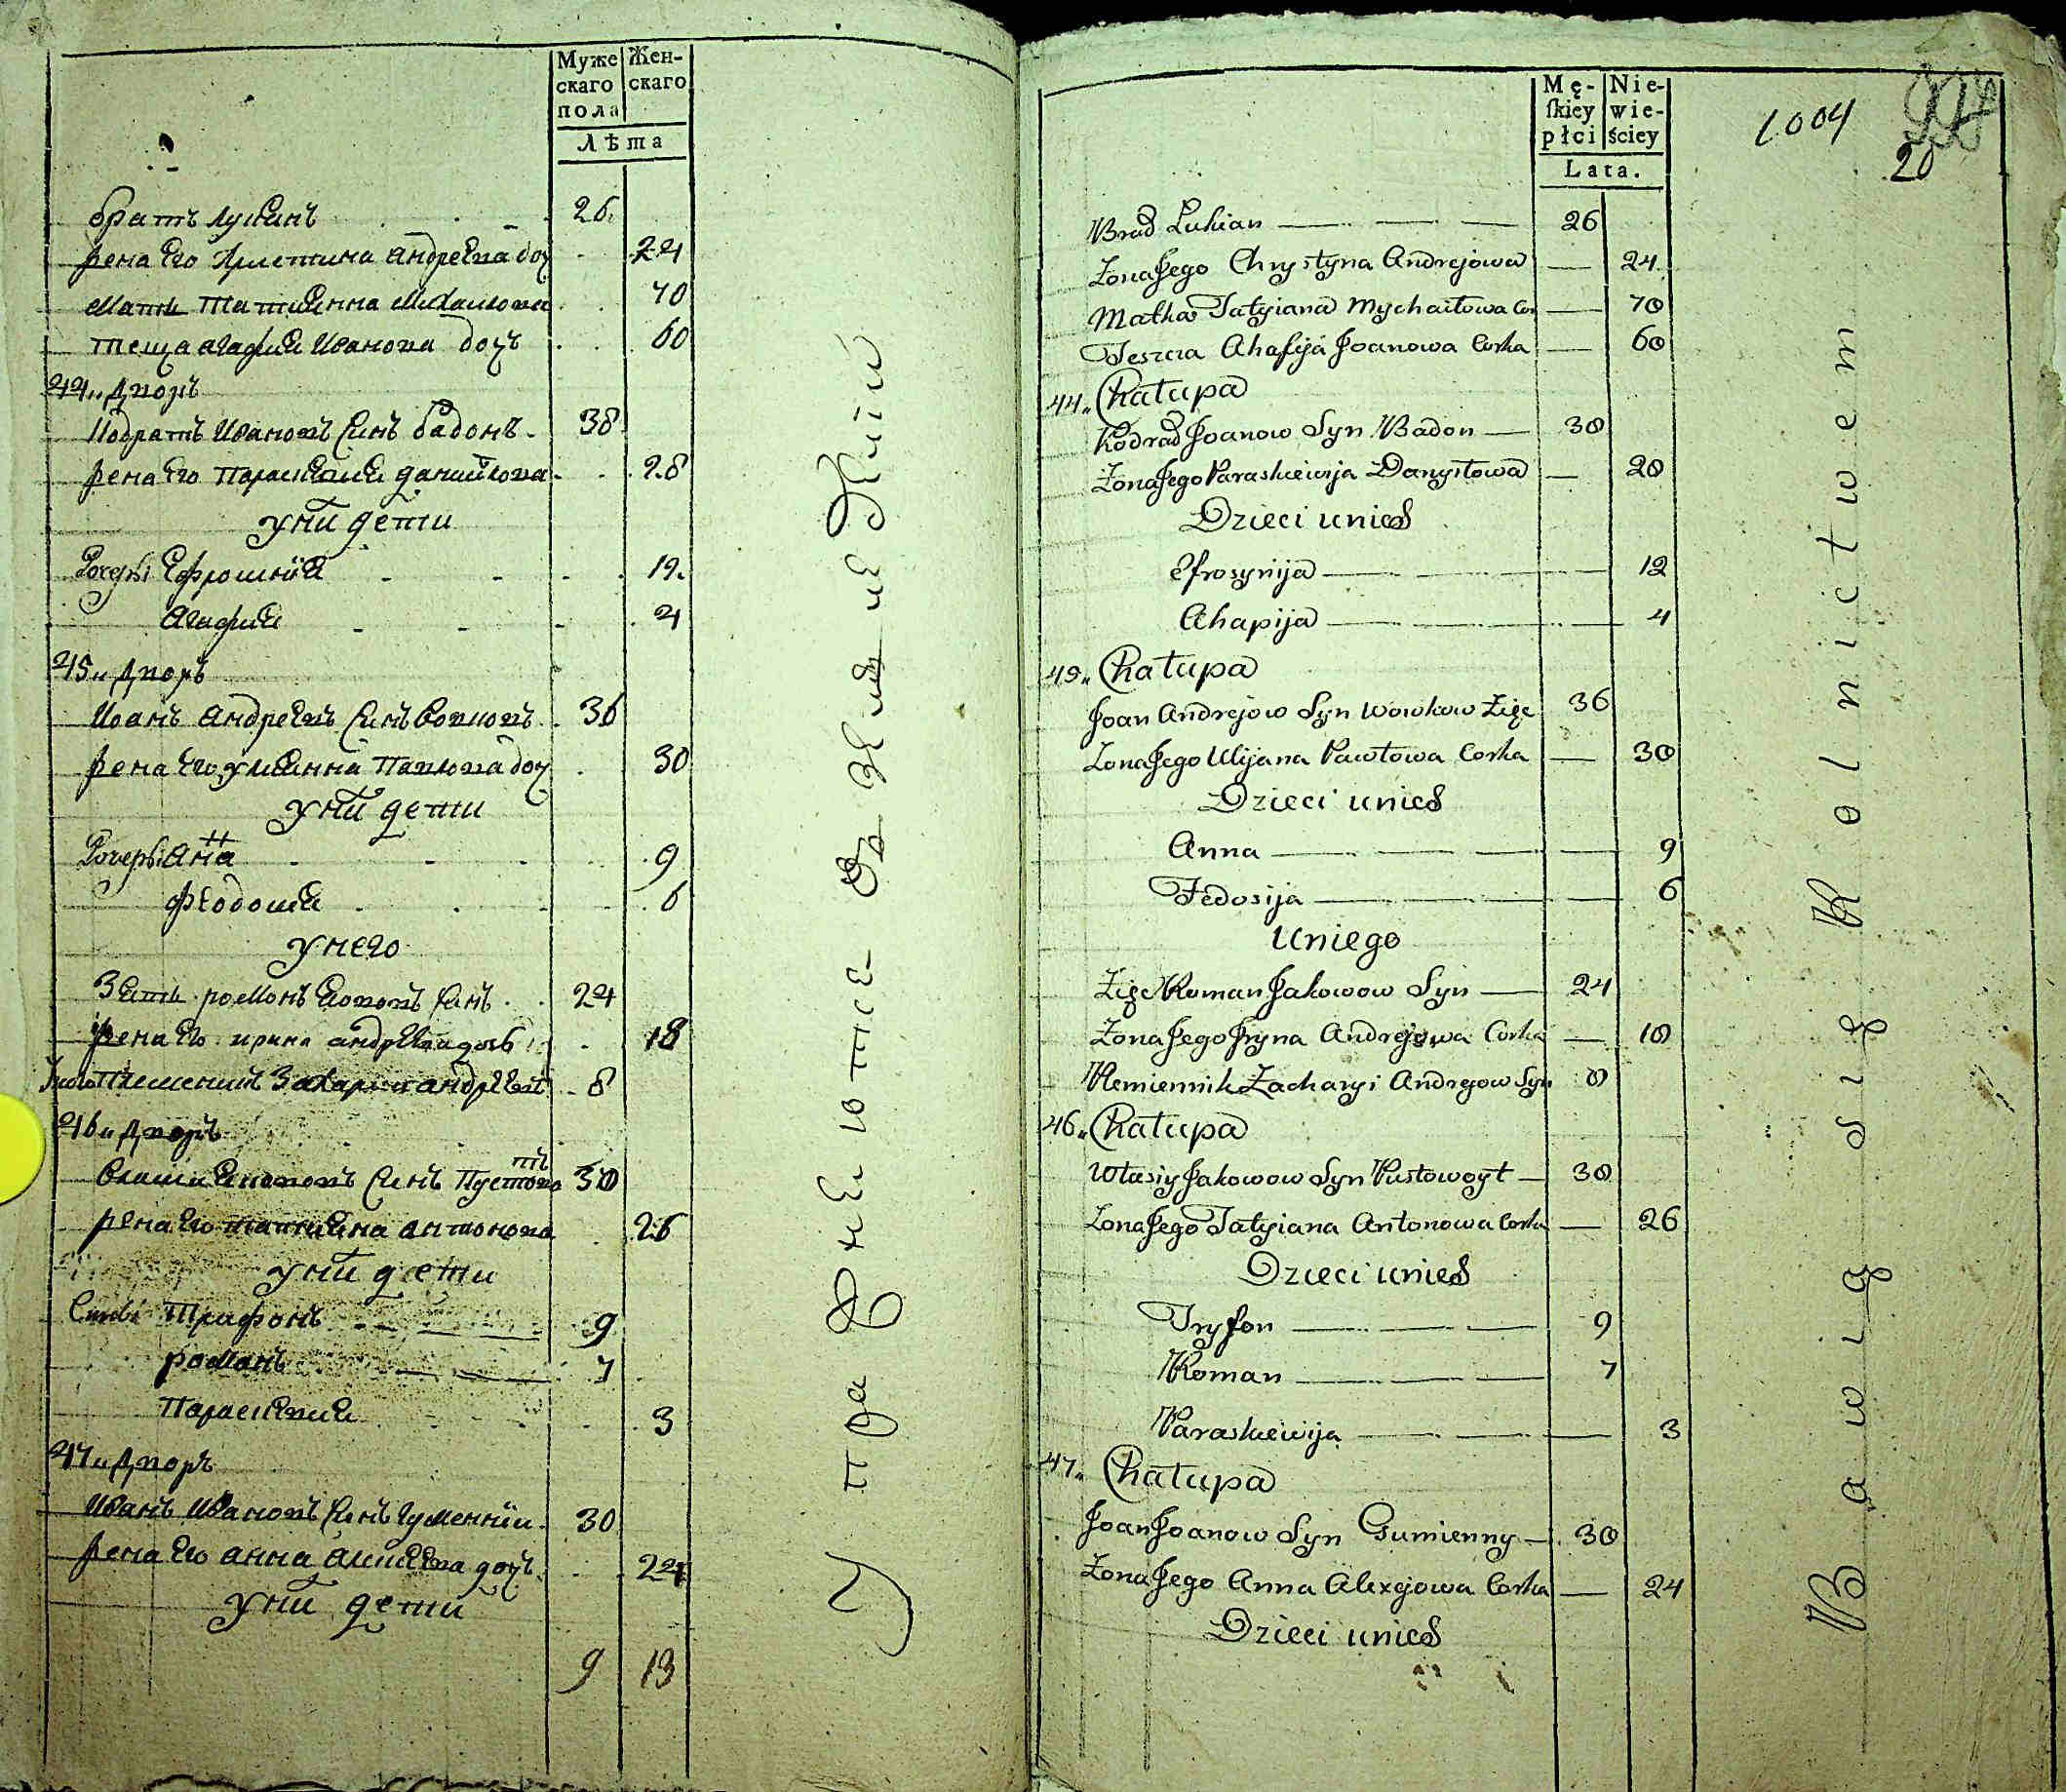 Муже Жен-
скаго скаго
пола
Лѣта
братъ лукѧнъ 26
жена Его Христина андреЕва доч 24
Мать татиѧнна Михаилова 70
теща агафиѧ Иванова дочъ 60
44„ дворъ
Кодратъ Ивановъ синъ бадонъ 38
жена Его параскевиѧ данилова 28
у нїи дети
дочери Ефросинїѧ 12
агафиѧ 4
45„ дворъ
Иванъ андреЕвъ синъ вовковъ 36
жена Его улиѧнна павлова доч 30
у нїи дети
дочери анна 9
феодосиѧ 6
у него
зѧть романъ ѧкововъ синъ 24
жена Его ирина андреЕва дочъ 18
племеникъ захарии андреЕвъ 8
46„ дворъ
власии ѧкововъ синъ пустовоитъ 30
жена Его татиѧна антонова 26
у нїи дети
сини трифонъ 9
романъ 7
параскевиѧ 3
47„ дворъ
Иванъ Ивановъ синъ гуменнїи 30
жена Его анна алексѣЕва дочъ 24
у нїи дети
9 13
Mę- Nie-
skiey wie-
płci ściey
Lata.
1004
20
Brad Lukian 26
Żona Jego Chrystyna Andrejowa 24
Matka Tatyiana Mychaiłowa Cor 70
Teszcza Ahafija Joanowa Corka 60
44„ Chałupa
Kodrad Joanow Syn Badon 38
Żona Jego Paraskiewija Danyłowa 28
Dzieci u nich
Efrosynija 12
Ahapija 4
45„ Chałupa
Joan Andrejow Syn Wowkow Zięc 36
Żona Jego Ulijana Pawłowa Corka 30
Dzieci u nich
Anna 9
Fedosija 6
U niego
Zięc Roman Jakowow Syn 24
Żona Jego Jryna Andrejowa Corka 18
Plemiennik Zacharyi Andrejow Syn 8
46„ Chałupa
Własiy Jakowow Syn Pustowoyt 30
Żona Jego Tatyiana Antonowa Corka 26
Dzieci u nich
Tryfon 9
Roman 7
Paraskiewija 3
47„ Chałupa
Joan Joanow Syn Gumienny 30
Żona Jego Anna Alexejowa Corka 24
Dzieci u nich
Bawią się Rolnictwem